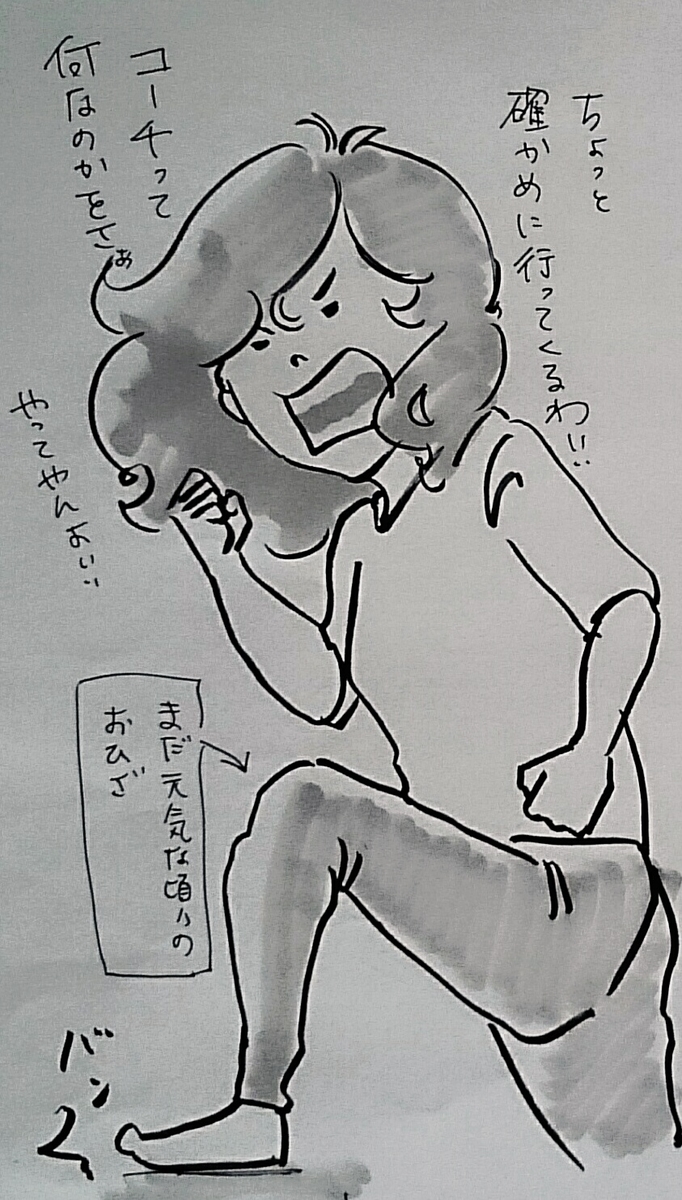 ちょっと
確かめに行ってくるわ!!
コーチって
何なのかをさぁ
やってやんよい!!
まだ元気な頃の
おひざ
バン